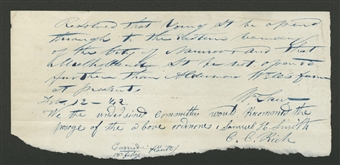 Resolved that Young St be opened
through to the Eastern boundary
of the City of Nauvoo and that
Mulholland St be not opened
further than Alderman Wells farm
at present.
W. Law
Feb 22 - 42
We the undersigned committee would recommend the
passage of the above ordinance, Samuel H. Smith
C. C. Rich
Carried